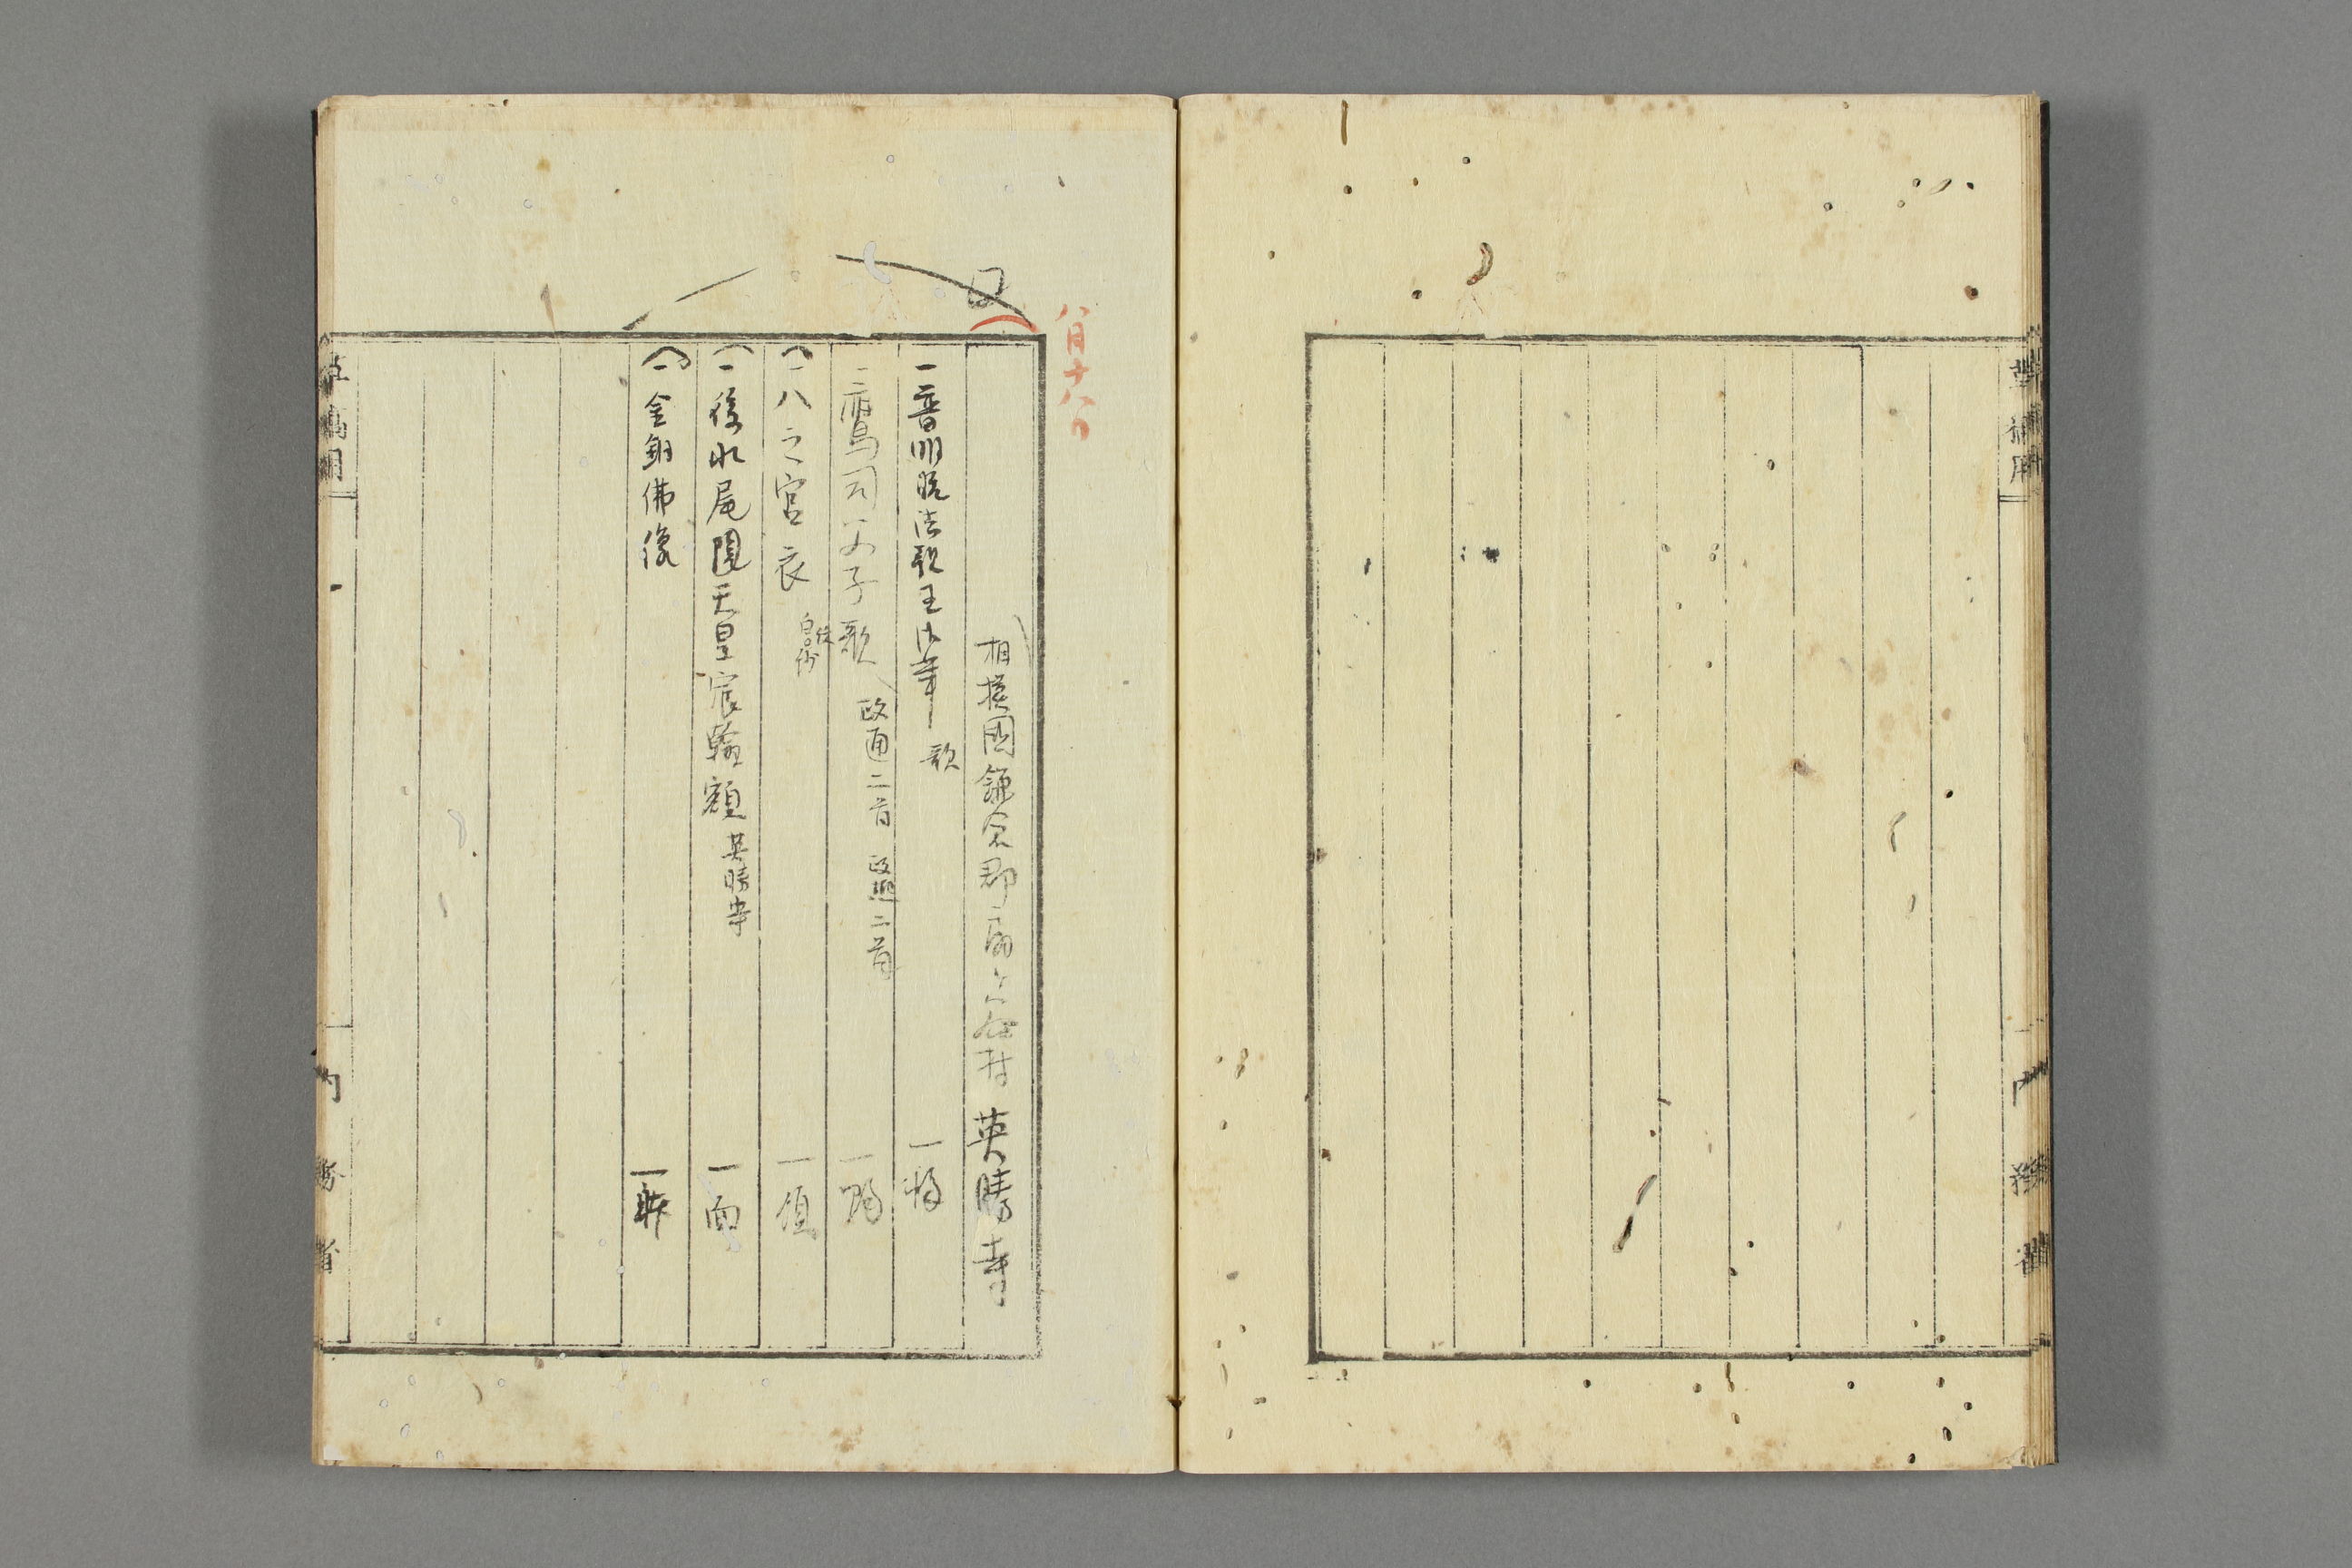 八月十八日
相摸國鎌倉郡扇ヶ谷村 英勝寺
一普明院法親王御筆 歌 一幅
一鷹司父子歌 政通二首 政熙二首 一幅
一八之宮衣 一領
一後水尾園天皇宸翰額 英勝寺 一面
一金銅佛像 一躰
草稿用
内務省